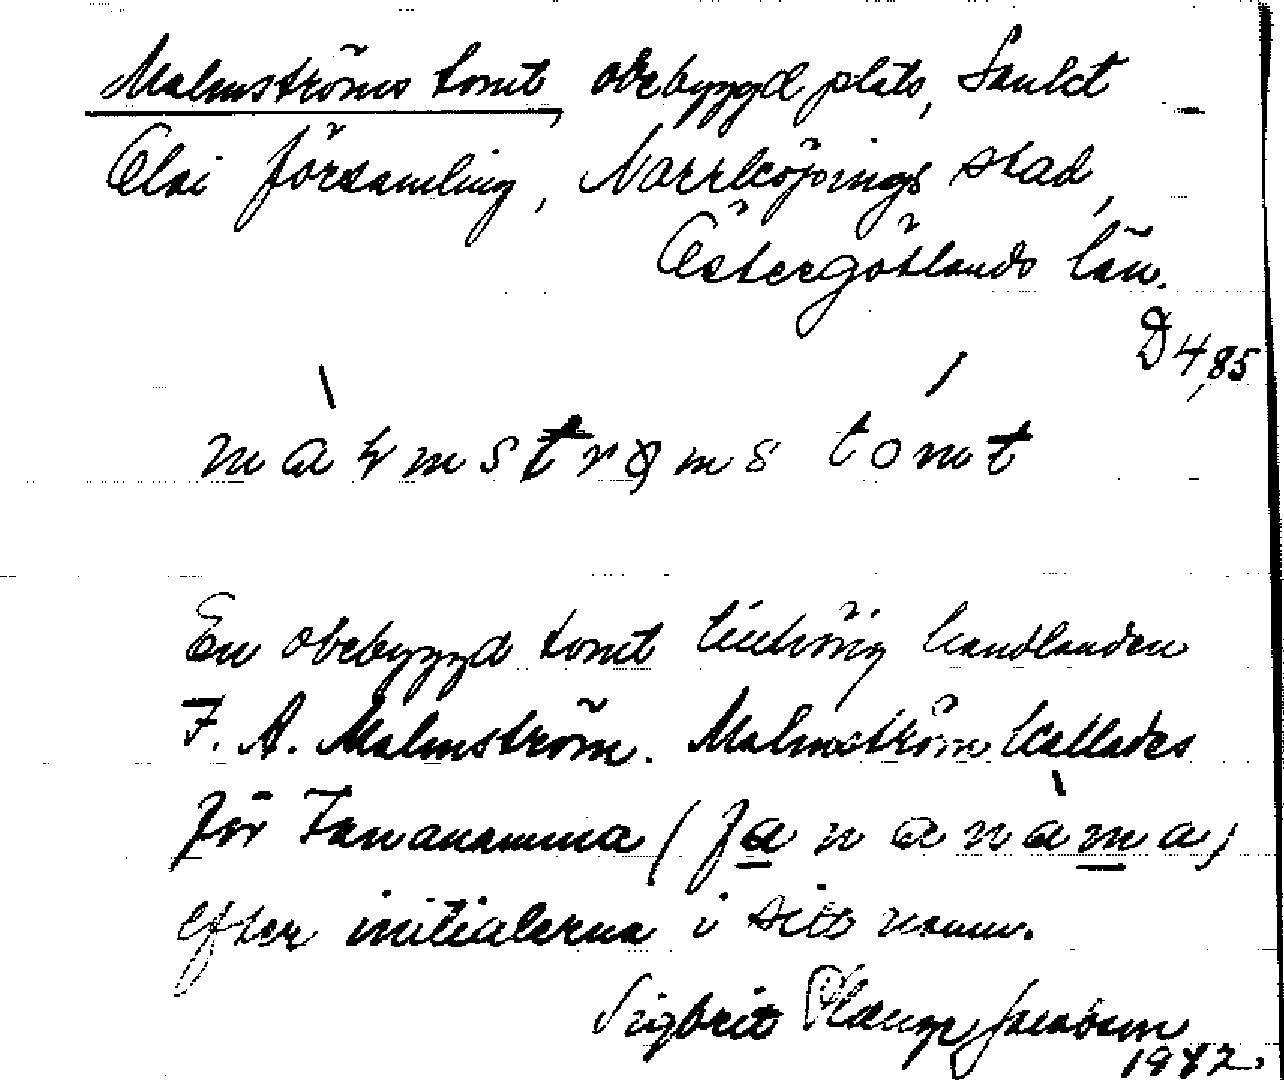 Malmströms tomt, obebyggd plats, Sankt
Olai församling, Norrköpings stad,
Östergötlands län.
D 4,85
màɽmstrǫms tómt
En obebyggd tomt tillhörig handlanden
F. A. Malmström. Malmström kallades
för Fananamma (fananàma)
efter initialerna i sitt namn.
Sigbrit Plænge Jacobson
1982.